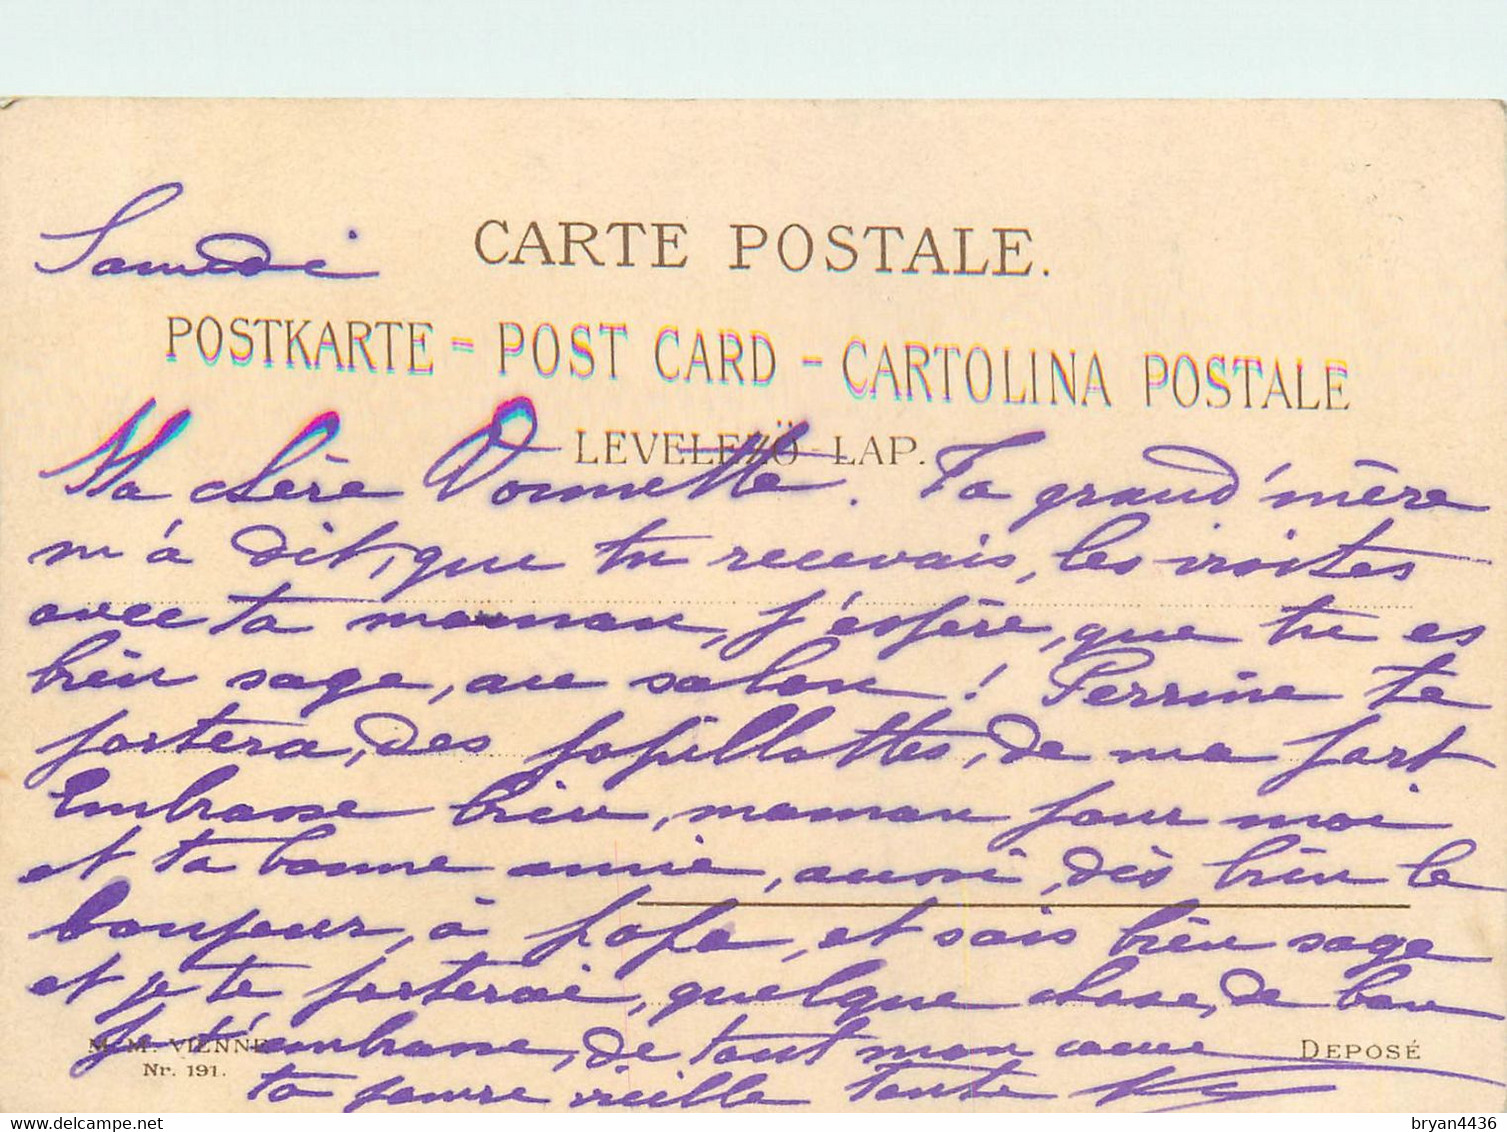 Samedi
CARTE POSTALE.
POSTKARTE = POST CARD - CARTOLINA POSTALE
LEVELEZÖ - LAP.
Ma chère Donnette. Ta grand'mère
m'a dit, que tu recevais, les visites
avec ta maman, j'espère, que tu es
bien sage, au salon ! Perrine te
portera, des papillottes, de ma part
Embrasse bien, maman pour moi
et ta bonne amie, aussi, dès bien le
bonjour, à papa, et sois bien sage
et je te porterai, quelque chose, de bon
Je t'embrasse, de tout mon coeur
ta pauvre vieille tante
M. M. VIENNE
Nr. 191.
DEPOSÉ
bryan4436